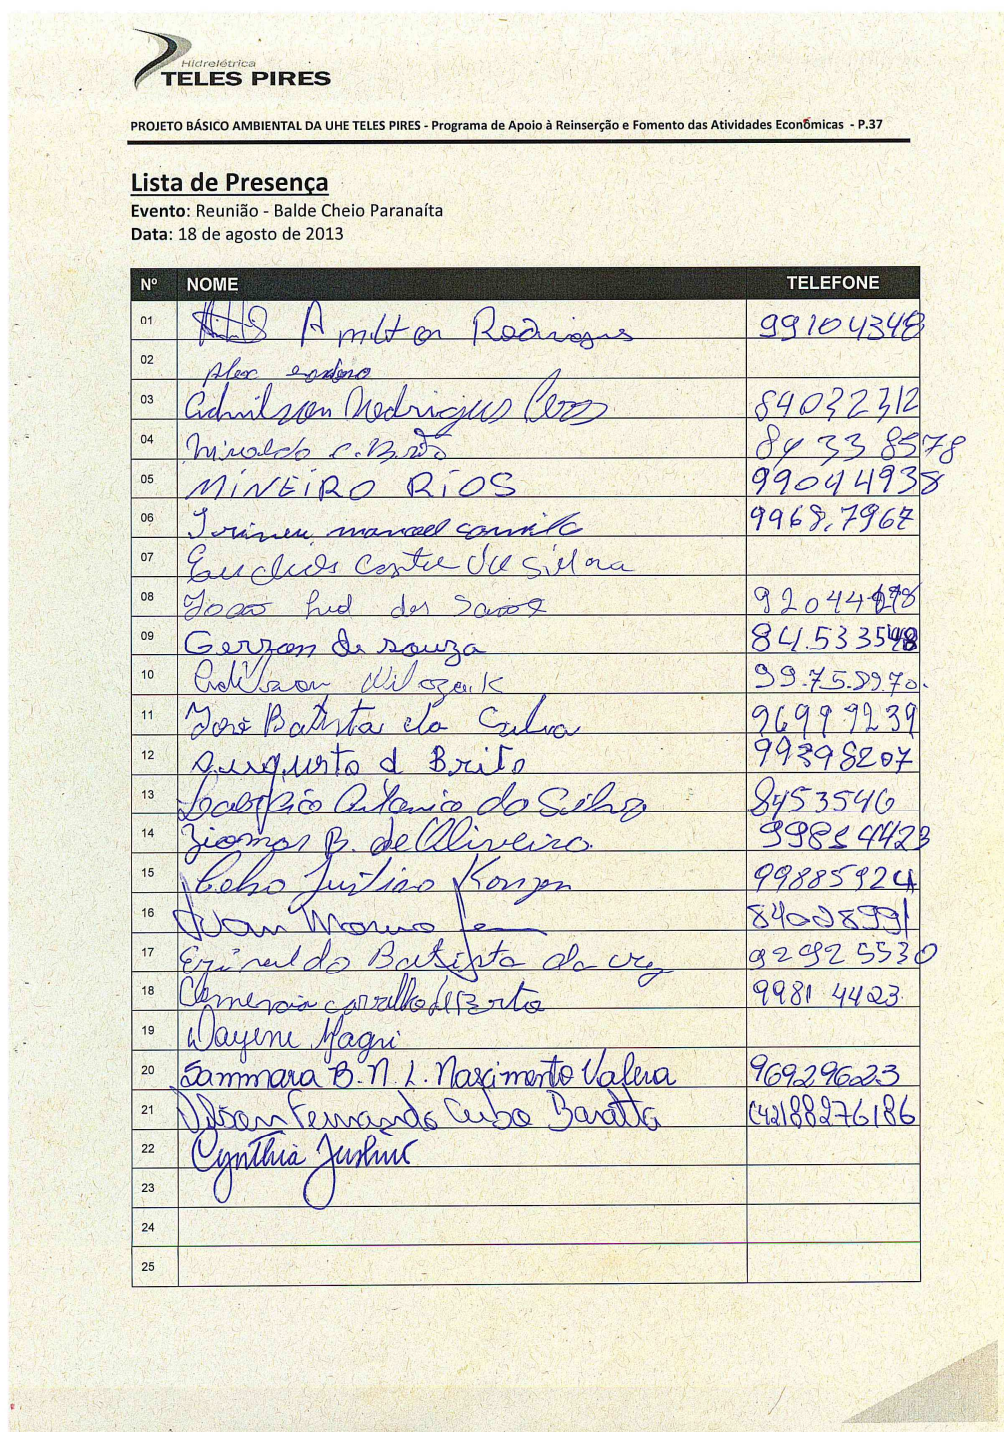 Hidrelétrica
TELES PIRES
PROJETO BÁSICO AMBIENTAL DA UHE TELES PIRES - Programa de Apoio à Reinserção e Fomento das Atividades Econômicas - P.37
Lista de Presença
Evento: Reunião - Balde Cheio Paranaíta
Data: 18 de agosto de 2013
Nº NOME TELEFONE
01 Amilton Rodrigues 99104348
02 Alex
03 Admilson Rodrigues 84032312
04 Nivaldo C. 84338578
05 MINEIRO RIOS 99044938
06 Irineu manoel camilo 9968.7967
07 Costa da Silva
08 João dos 
09 Gerzon de souza 84.5335
10 99.75.89.70.
11 José Batista da Silva 96999239
12 Augusto d Brito 99398207
13 Antonio da Silva 8453546
14 Ziomar B. de Oliveira. 99854423
15 Celso Justino Konzen 99885924
16 Ivan Moreno 84028991
17 Erinaldo Batista da cruz 92925530
18 carvalho 9981 4423
19 Dayene Magri
20 Sammara B. N. L. Nascimento Valera 96929623
21 Fernando Baratta (42)88276186
22 Cynthia Justino
23
24
25